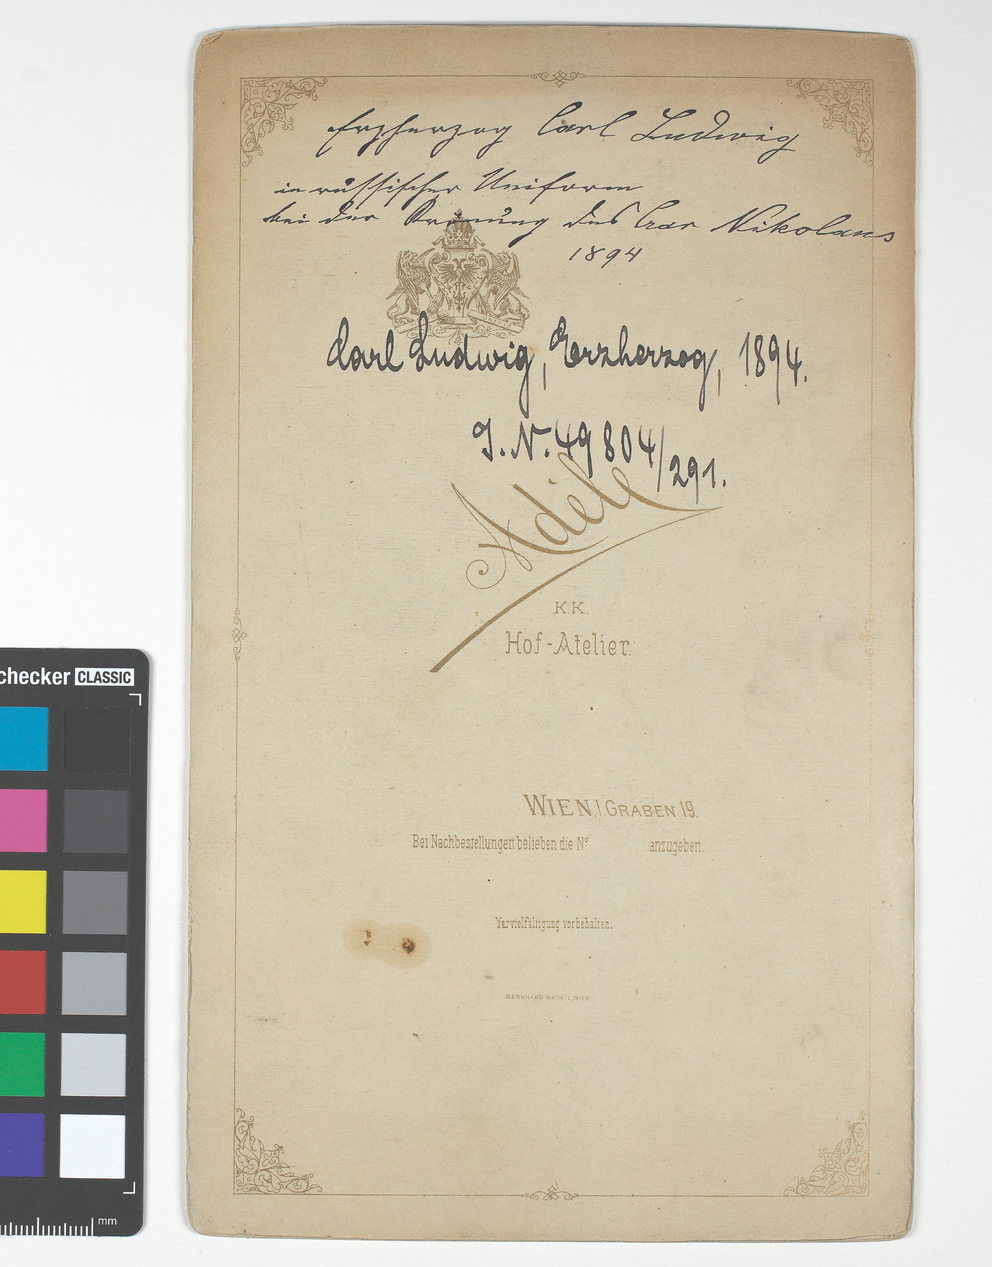 Erzherzog Carl Ludwig
in russischer Uniform
bei der Krönung des Czar Nikolaus
1894
Carl Ludwig, Erzherzog, 1894.
J.N. 49804/291.
Adéle
K.K.
Hof-Atelier.
WIEN, I. GRABEN 19.
Bei Nachbestellungen belieben die Nº anzugeben.
Vervielfältigung vorbehalten.
BERNHARD WACHTL, WIEN
checker CLASSIC
mm